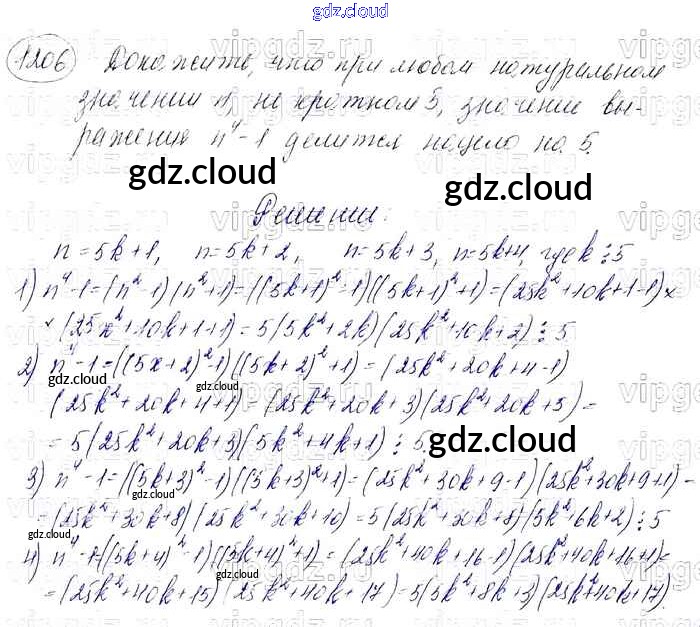 gdz.cloud
1206 Докажите, что при любом натуральном
значении n, не кратном 5, значение вы-
ражения n⁴-1 делится нацело на 5.
gdz.cloud
gdz.cloud
Решение:
n=5k+1, n=5k+2, n=5k+3, n=5k+4, где k⋮5
1) n⁴-1=(n²-1)(n²+1)=((5k+1)²-1)((5k+1)²+1)=(25k²+10k+1-1)×
×(25x²+10k+1+1)=5(5k²+2k)(25k²+10k+2)⋮5
2) n⁴-1=((5x+2)²-1)((5k+2)²+1)=(25k²+20k+4-1)
gdz.cloud
gdz.cloud
(25k²+20k+4+1)=(25k²+20k+3)(25k²+20k+5)=
=5(25k²+20k+3)(5k²+4k+1)⋮5
gdz.cloud
3) n⁴-1=((5k+3)²-1)((5k+3)²+1)=(25k²+30k+9-1)(25k²+30k+9+1)=
gdz.cloud
=(25k²+30k+8)(25k²+30k+10)=5(25k²+30k+8)(5k²+6k+2)⋮5
gdz.cloud
4) n⁴-1=((5k+4)²-1)((5k+4)²+1)=(25k²+40k+16-1)(25k²+40k+16+1)=
gdz.cloud
=(25k²+40k+15)(25k²+40k+17)=5(5k²+8k+3)(25k²+40k+17)